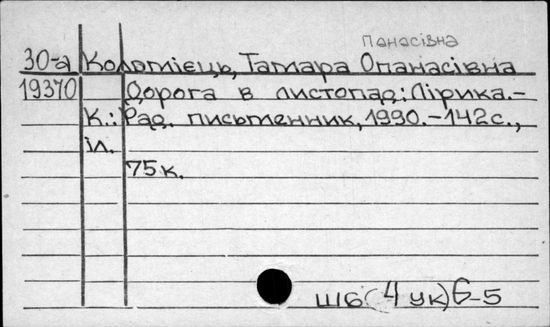 Панасівна
30-а Коломієць, Тамара Опанасівна
19370 Дорога в листопад: Лірика.-
К.: Рад. письменник, 1990.-142с.,
іл.
75к.
Ш6(4 ук)6-5